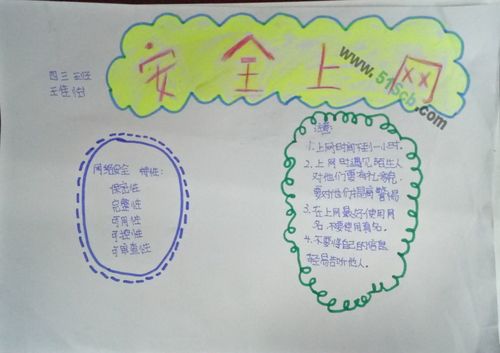 安全上网
www.51Scb.com
四三班
网络安全 特性:
保密性
完整性
可用性
可控性
可审查性
注意:
2.上网时遇见陌生人
对他们要有礼貌,
要对他们提高警惕
3.在上网最好使用网
名,不要使用真名.
4.不要将自己的信息
轻易告诉他人.